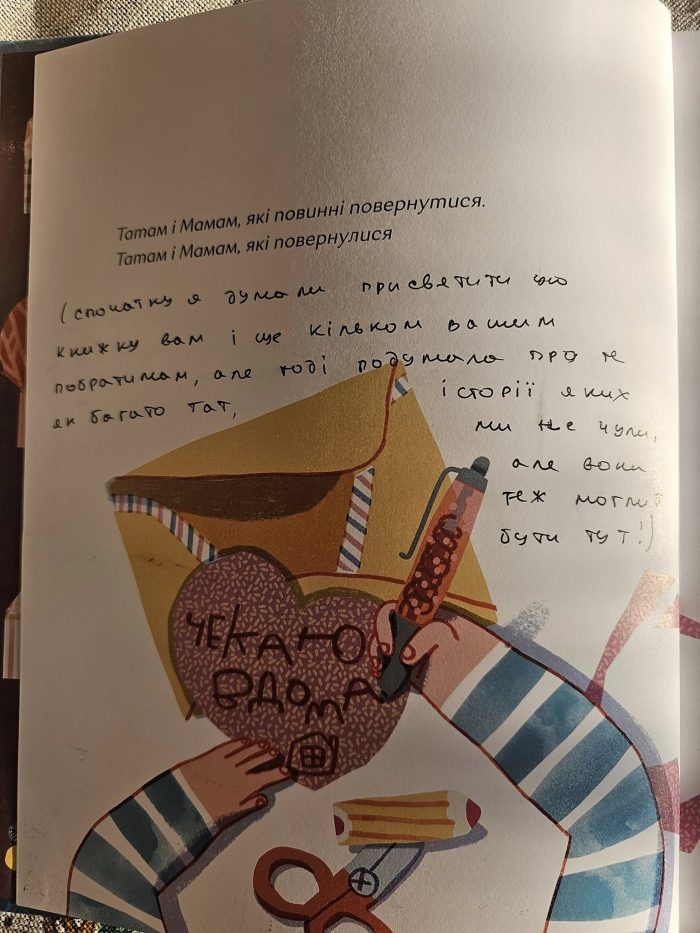 Татам і Мамам, які повинні повернутися.
Татам і Мамам, які повернулися
(спочатку я думали присвятити цю
книжку вам і ще кільком вашим
побратимам, але тоді подумала про те
як багато тат, історії яких
ми не чули,
але вони
теж могли
бути тут!)
ЧЕКАЮ
ВДОМА